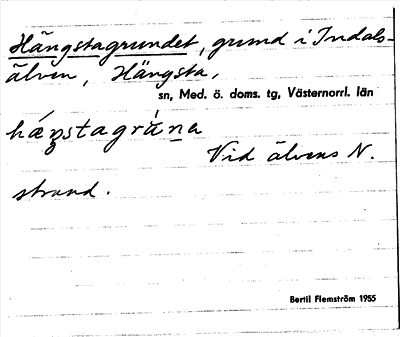 Hängstagrundet, grund i Indals-
älven, Hängsta,
sn, Med. ö. doms. tg, Västernorrl. län
Vid älvens N.
strand.
Bertil Flemström 1955